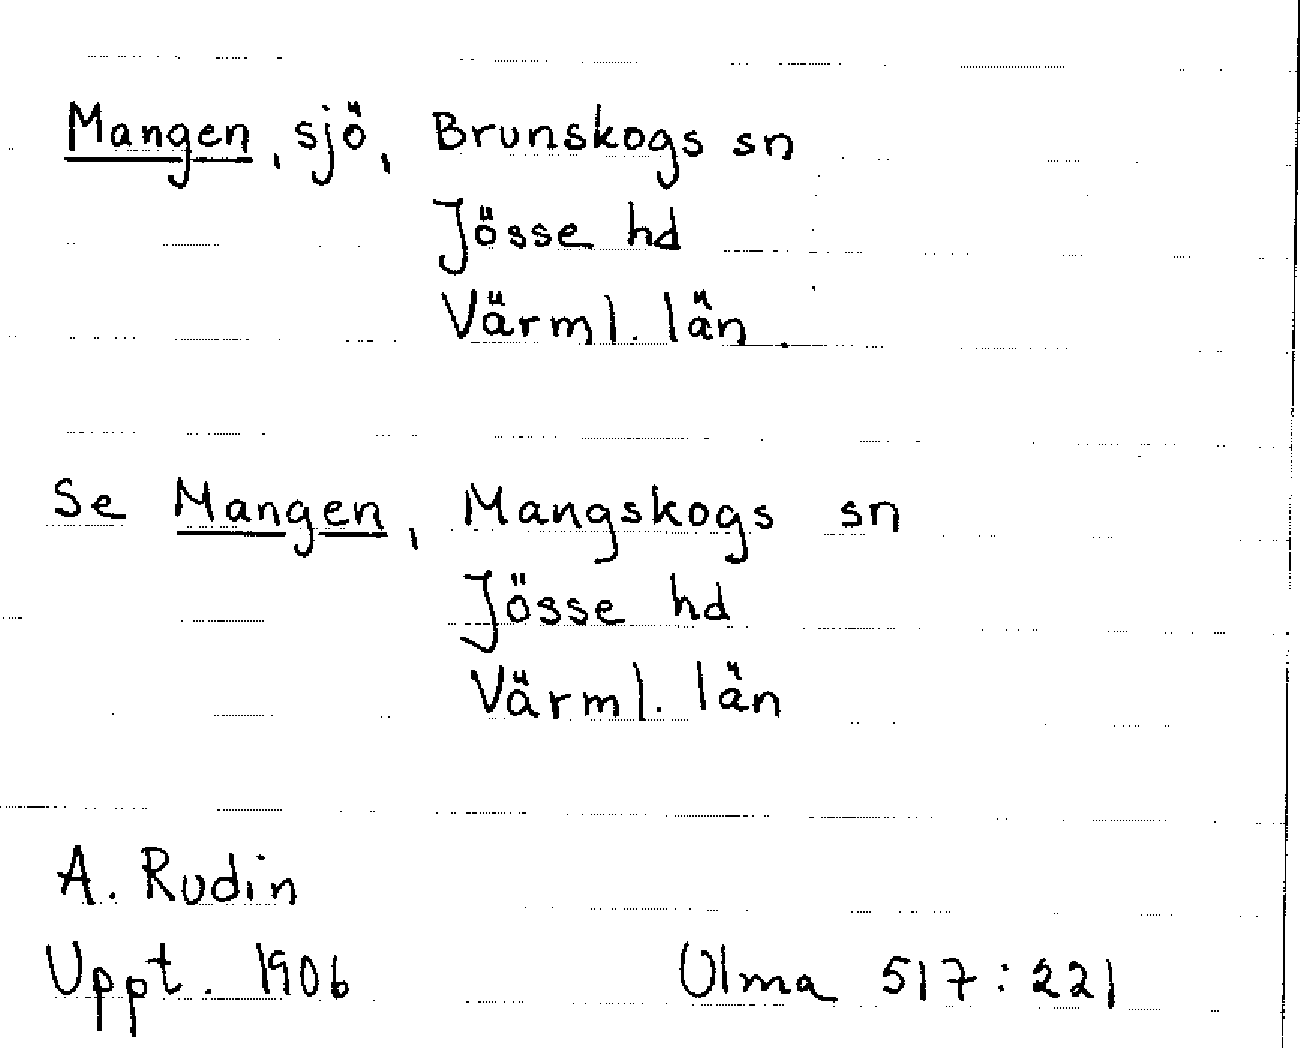 Mangen, sjö, Brunskogs sn
Jösse hd
Värml. län.
Se Mangen, Mangskogs sn
Jösse hd
Värml. län
A. Rudin
Uppt. 1906 Ulma 517:221